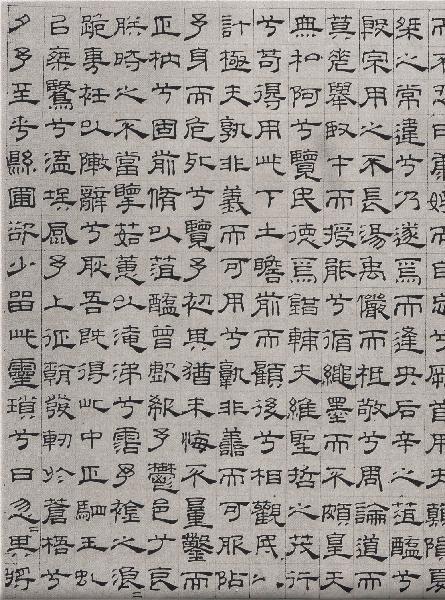 而不忍日康娛而自忘兮厥首用夫顛隕夏
桀之常違兮乃遂焉而逢央后辛之菹醢兮
殷宗用之不長湯禹儼而祗敬兮周論道而
莫差舉臤才而授能兮循繩墨而不頗皇天
無私阿兮覽民德焉錯輔夫維聖哲之茂行
兮苟得用此下土瞻前而顧後兮相觀民之
計極夫孰非義而可用兮孰非善而可服阽
予身而危死兮覽予初其猶未悔不量鑿而
正枘兮固前脩以菹醢曾歔欷予鬱邑兮哀
朕時之不當擥茹蕙以淹涕兮霑予襟之浪〻
跪尃衽以陳辭兮耿吾既得此中正駟玉虬
㠯椉鷖兮溘埃風予上征朝發軔於蒼梧兮
夕予至乎縣圃欲少留此靈瑣兮日忽〻其將